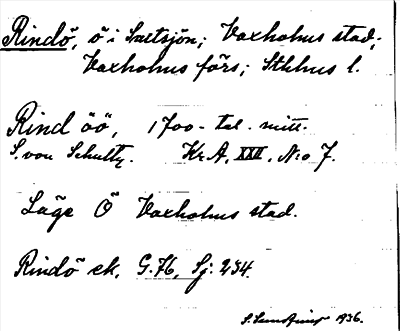 Rindö, ö i Saltsjön; Vaxholms stad;
Vaxholms förs; Sthlms l.
Rind öö, 1700-tal. mitt.
S. von Schultz. Kr. A. XXII. N:o 7.
Läge Ö Vaxholms stad.
Rindö ek. G. 76, Sj: 234.
1936.